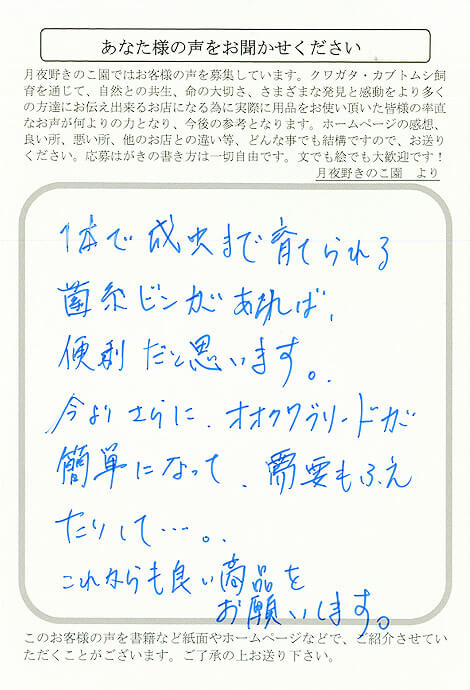 あなた様の声をお聞かせください
月夜野きのこ園ではお客様の声を募集しています。クワガタ・カブトムシ飼
育を通じて、自然との共生、命の大切さ、さまざまな発見と感動をより多く
の方達にお伝え出来るお店になる為に実際に用品をお使い頂いた皆様の率直
なお声が何よりの力となり、今後の参考となります。ホームページの感想、
良い所、悪い所、他のお店との違い等、どんな事でも結構ですので、お送り
ください。応募はがきの書き方は一切自由です。文でも絵でも大歓迎です！
月夜野きのこ園　より
1本で成虫まで育てられる
菌糸ビンがあれば、
便利だと思います。
今よりさらに、オオクワブリードが
簡単になって、需要もふえ
たりして…。
これからも良い商品を
お願いします。
このお客様の声を書籍など紙面やホームページなどで、ご紹介させてい
ただくことがございます。ご了承の上お送り下さい。